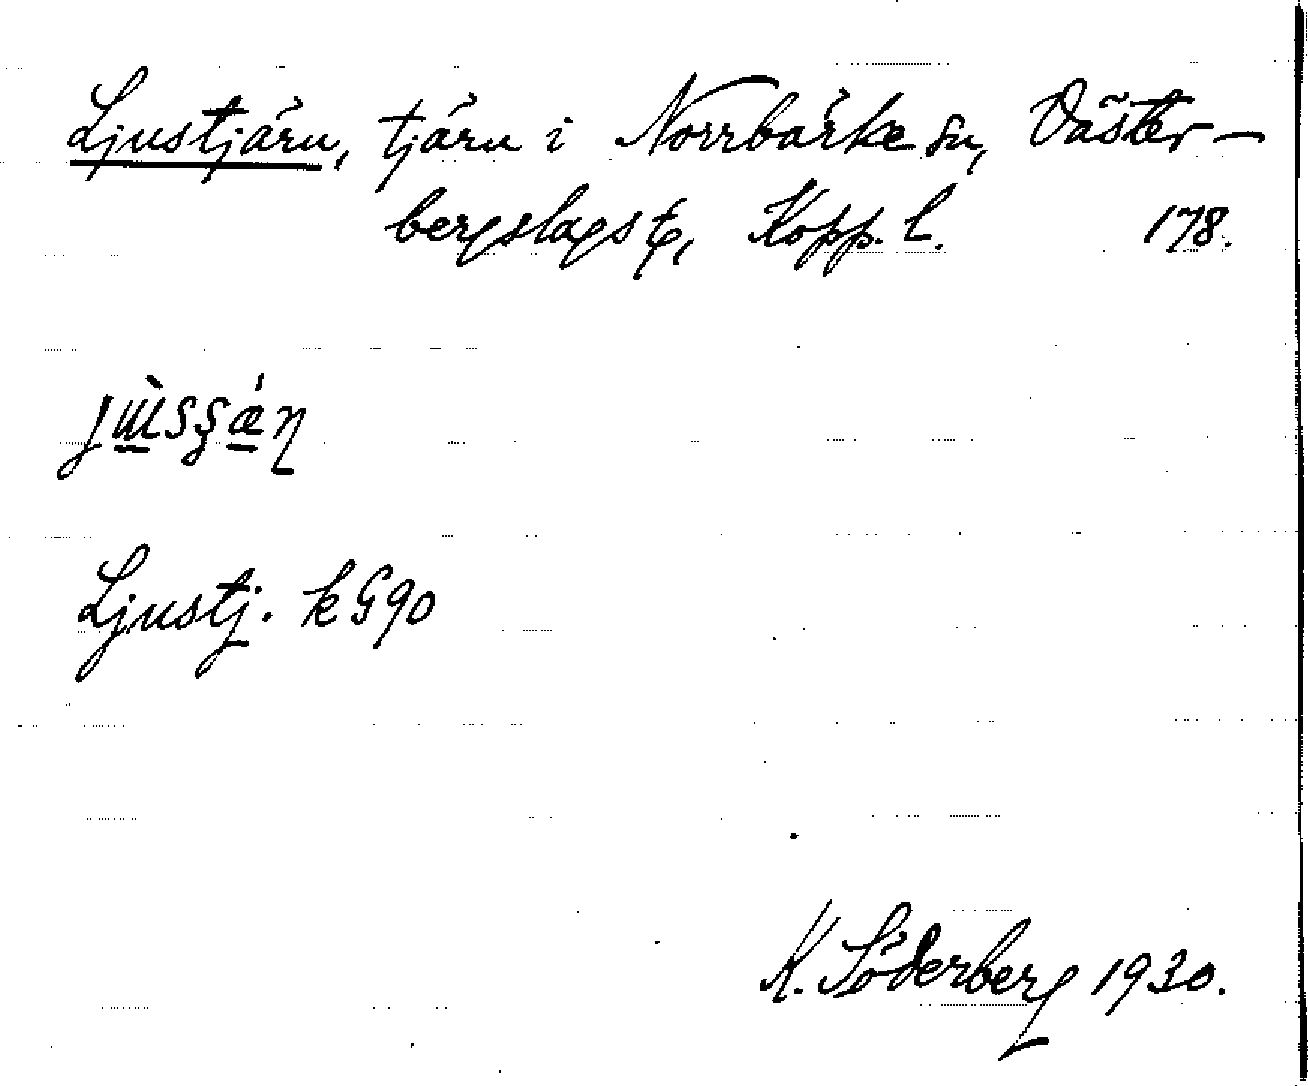 Ljustjärn, tjärn i Norrbärke sn, Väster-
bergslags t, Kopp. l. 178.
Ljustj. k G 90
K. Söderberg 1930.